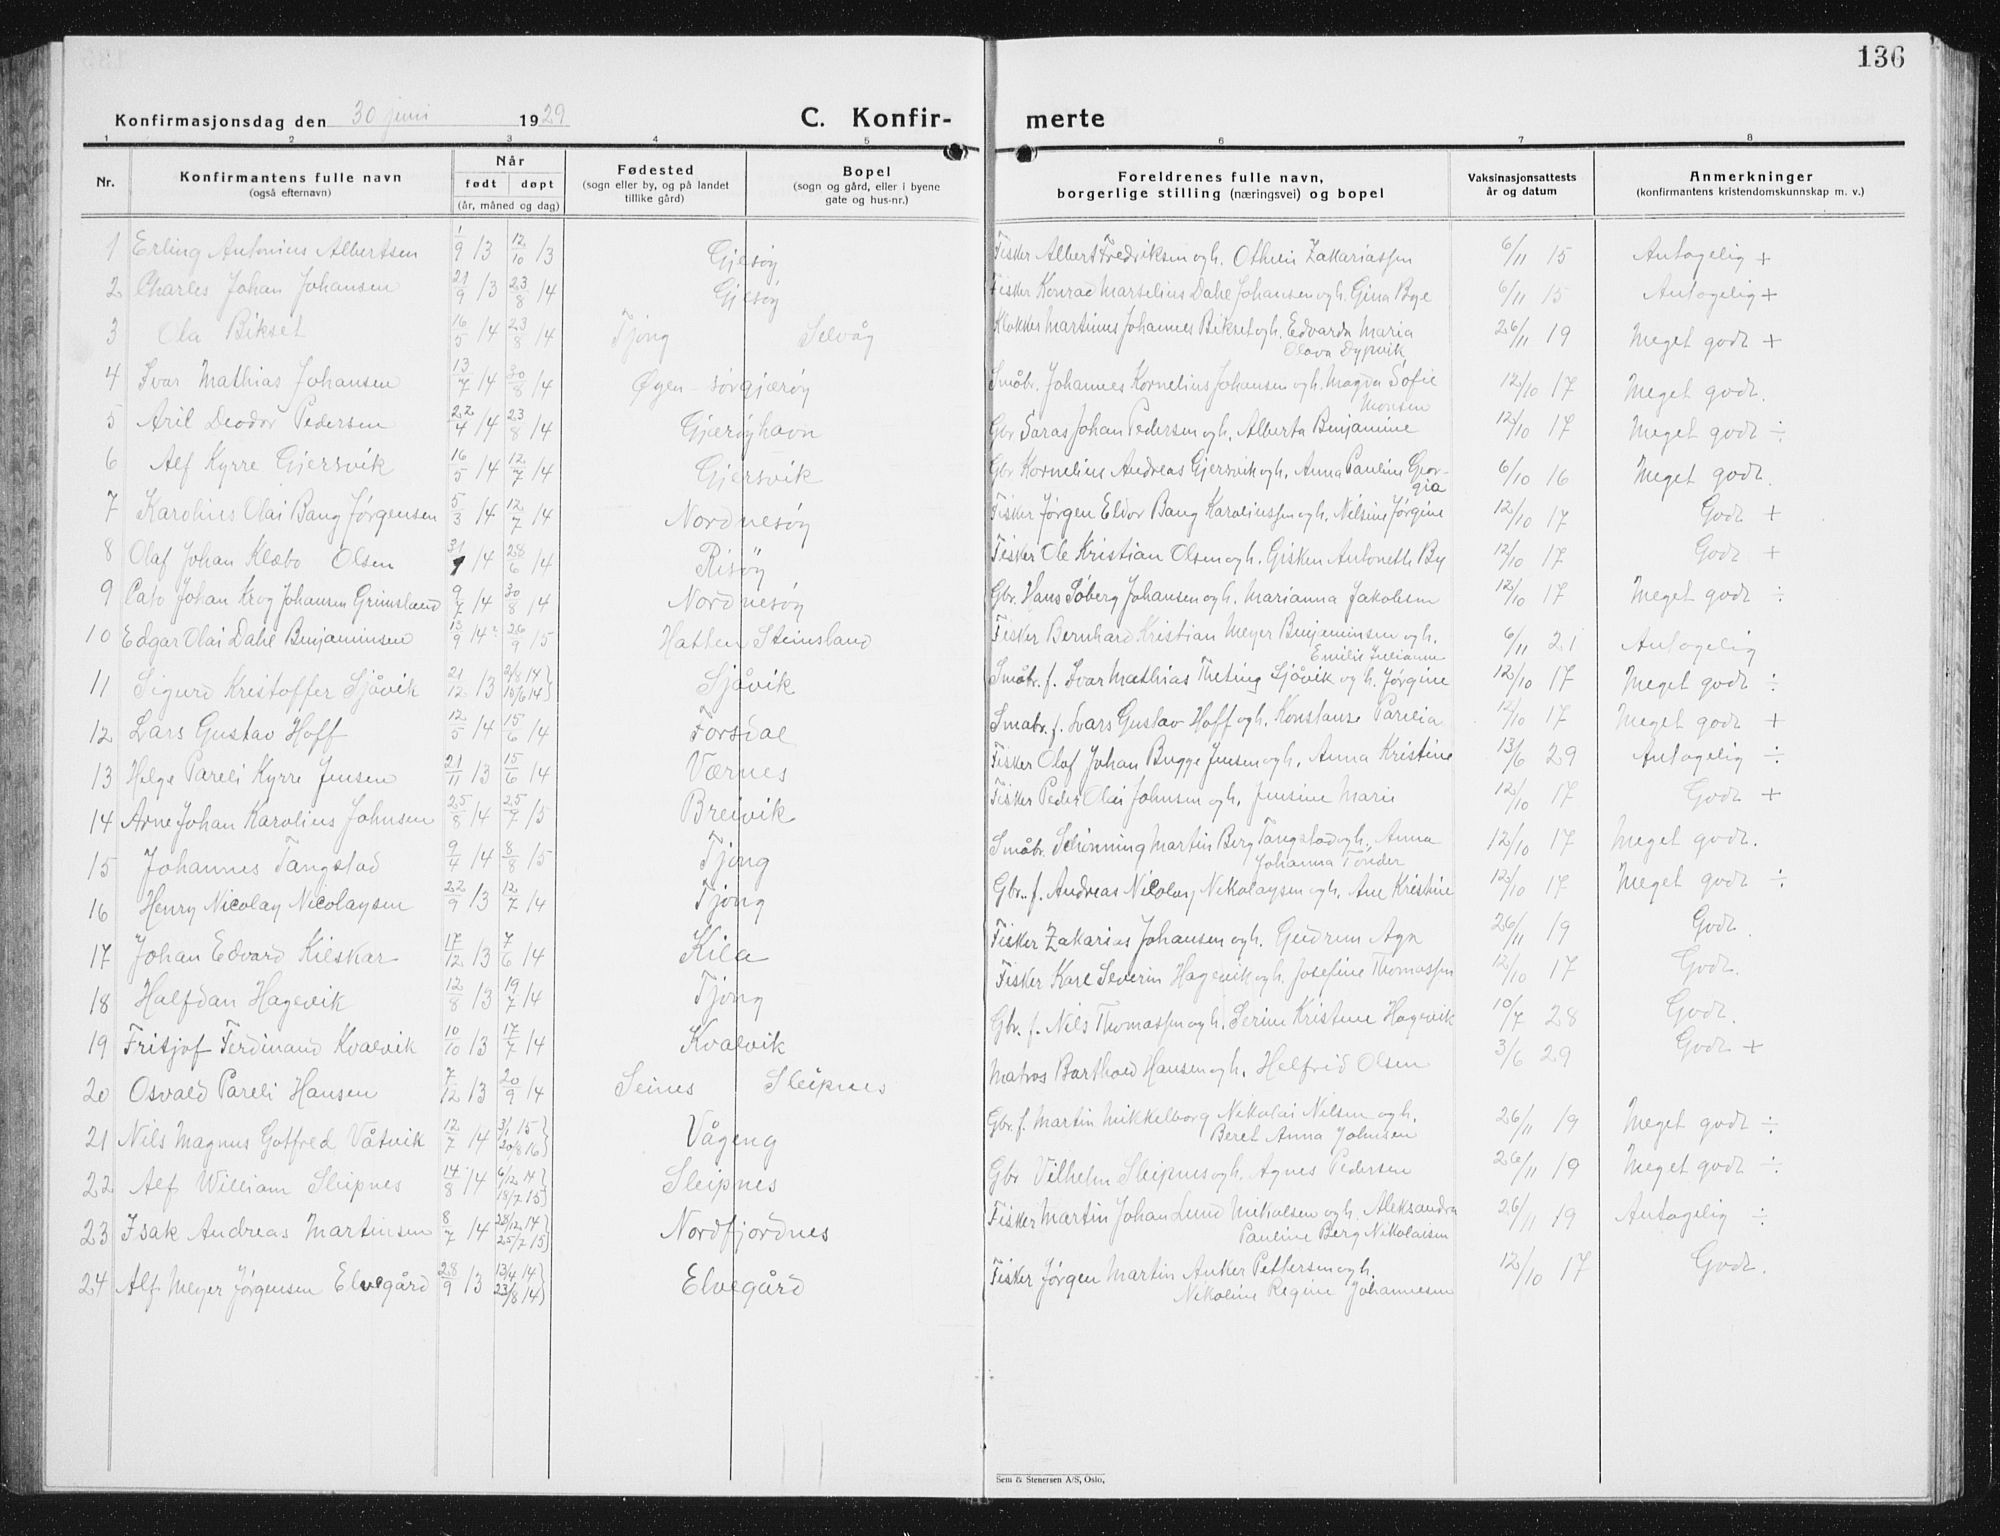 136
Konfirmasjonsdag den 30 juni 1929 C. Konfir- merte
1 2 3 4 5 6 7 8
Nr. Konfirmantens fulle navn (også efternavn) Når født døpt (år, måned og dag) Fødested (sogn eller by, og på landet tillike gård) Bopel (sogn og gård, eller i byene gate og hus-nr.) Foreldrenes fulle navn, borgerlige stilling (næringsvei) og bopel Vaksinasjonsattests år og datum Anmerkninger (konfirmantens kristendomskunnskap m. v.)
1 Erling Antonius Albertsen 1/9 13 12/10 13 Gjesøy Fisker Albert Fredriksen og h. Othein Zakariassen 6/11 15 Antagelig +
2 Charles Johan Johansen 21/9 13 23/8 14 Gjesøy Fisker Konrad Marselius Dahl Johansen og h. Gina Bye 6/11 15 Antagelig +
3 Ola Bikset 16/5 14 23/8 14 Tjong Selvåg Klokker Martinus Johannes Bikset og h. Edvarda Maria
Olava Dypvik 26/11 19 Meget godt +
4 Ivar Mathias Johansen 13/7 14 30/8 14 Øyen - sørgjærøy Småbr. Johannes Kornelius Johansen og h. Magda Sofie
Monsen 12/10 17 Meget godt.
5 Aril Deodor Pedersen 22/4 14 23/8 14 Gjærøyhavn Gbr Saras Johan Pedersen og h. Alberta Benjamine 12/10 17 Meget godt ÷
6 Alf Kyrre Gjersvik 16/5 14 12/7 14 Gjersvik Gbr Kornelius Andreas Gjersvik og h. Anna Pauline Geor-
gia 6/10 16 Meget godt.
7 Karolius Olai Bang Jørgensen 5/3 14 12/7 14 Nordnesøy Fisker Jørgen Eldor Bang Karoliussen og h. Nilsine Jørgine 12/10 17 Godt +
8 Olaf Johan Klæbo Olsen 31/1 14 28/6 14 Risøy Fisker Ole Kristian Olsen og h. Gisken Antonette By 12/10 17 Godt +
9 Cato Johan Krog Johansen Grimsland 9/7 14 30/8 14 Nordnesøy Gbr. Hans Søberg Johansen og h. Marianna Jakobsen 12/10 17 Meget godt ÷
10 Edgar Olai Dahl Benjaminsen 13/9 14 26/9 15 Hatten Steinsland Fisker Bernhard Kristian Meyer Benjaminsen og h.
Emilie Julianne 6/11 21 Antagelig
11 Sigurd Kristoffer Sjåvik 21/12 13 2/8 14) 10/6 14) Sjåvik Småbr. f. Ivar Mathias Theting Sjåvik og h. Jørgine 12/10 17 Meget godt ÷
12 Lars Gustav Hoff 12/5 14 15/6 14 Forsdal Småbr. f. Lars Gustav Hoff og h. Konstanse Parelia 12/10 17 Meget godt +
13 Helge Pareli Kyrre Jensen 21/11 13 15/6 14 Værnes Fisker Olaf Johan Bugge Jensen og h. Anna Kristine 13/6 29 Antagelig ÷
14 Arne Johan Karolius Johnsen 25/8 14 25/7 15 Breivik Fisker Peder Olai Johnsen og h. Jensine Marie 12/10 17 Godt +
15 Johannes Tangstad 9/4 14 8/8 15 Tjong Småbr. Schønning Martin Berg Tangstad og h. Anna
Johanna Tønder 12/10 17 Meget godt.
16 Henry Nicolay Nicolaysen 22/9 13 12/7 14 Tjong Gbr. f. Andreas Nicolay Nikolaysen og h. Ane Kristine 12/10 17 Meget godt ÷
17 Johan Edvard Kilskar 17/12 13 7/6 14 Kila Fisker Zakarias Johansen og h. Gudrun 26/11 19 Godt.
18 Halfdan Hagevik 12/8 13 19/7 14 Tjong Fisker Karl Severin Hagevik og h. Josefine Thomassen 12/10 17 Godt.
19 Fritjof Ferdinand Kvalvik 10/10 13 17/7 14 Kvalvik Gbr. f. Nils Thomassen og h. Serine Kristine Hagevik 10/7 28 Godt.
20 Osvald Pareli Hansen 7/12 13 20/9 14 Seines Sleipnes Matros Barthold Hansen og h. Helfrid Olsen 3/6 29 Godt +
21 Nils Magnus Gotfred Våtvik 12/7 14 3/1 15) 20/8 16) Vågeng Gbr. f. Martin Mikkelborg Nikolai Nilsen og h.
Beret Anna Johnsen 26/11 19 Meget godt ÷
22 Alf William Sleipnes 14/8 14 6/12 14) 18/7 15) Sleipnes Gbr Vilhelm Sleipnes og h. Agnes Pedersen 26/11 19 Meget godt ÷
23 Isak Andreas Martinsen 8/7 14 28/12 14) 25/7 15) Nordfjordnes Fisker Martin Johan Lund Mikalsen og h. Aleksandra
Pauline Berg Nikolaisen 26/11 19 Antagelig ÷
24 Alf Meyer Jørgensen Elvegård 28/9 13 13/4 14) 23/8 14) Elvegård Fisker Jørgen Martin Anker Pettersen og h.
Nikoline Regine Johannesen 12/10 17 Godt.
Sem & Stenersen A/S, Oslo.